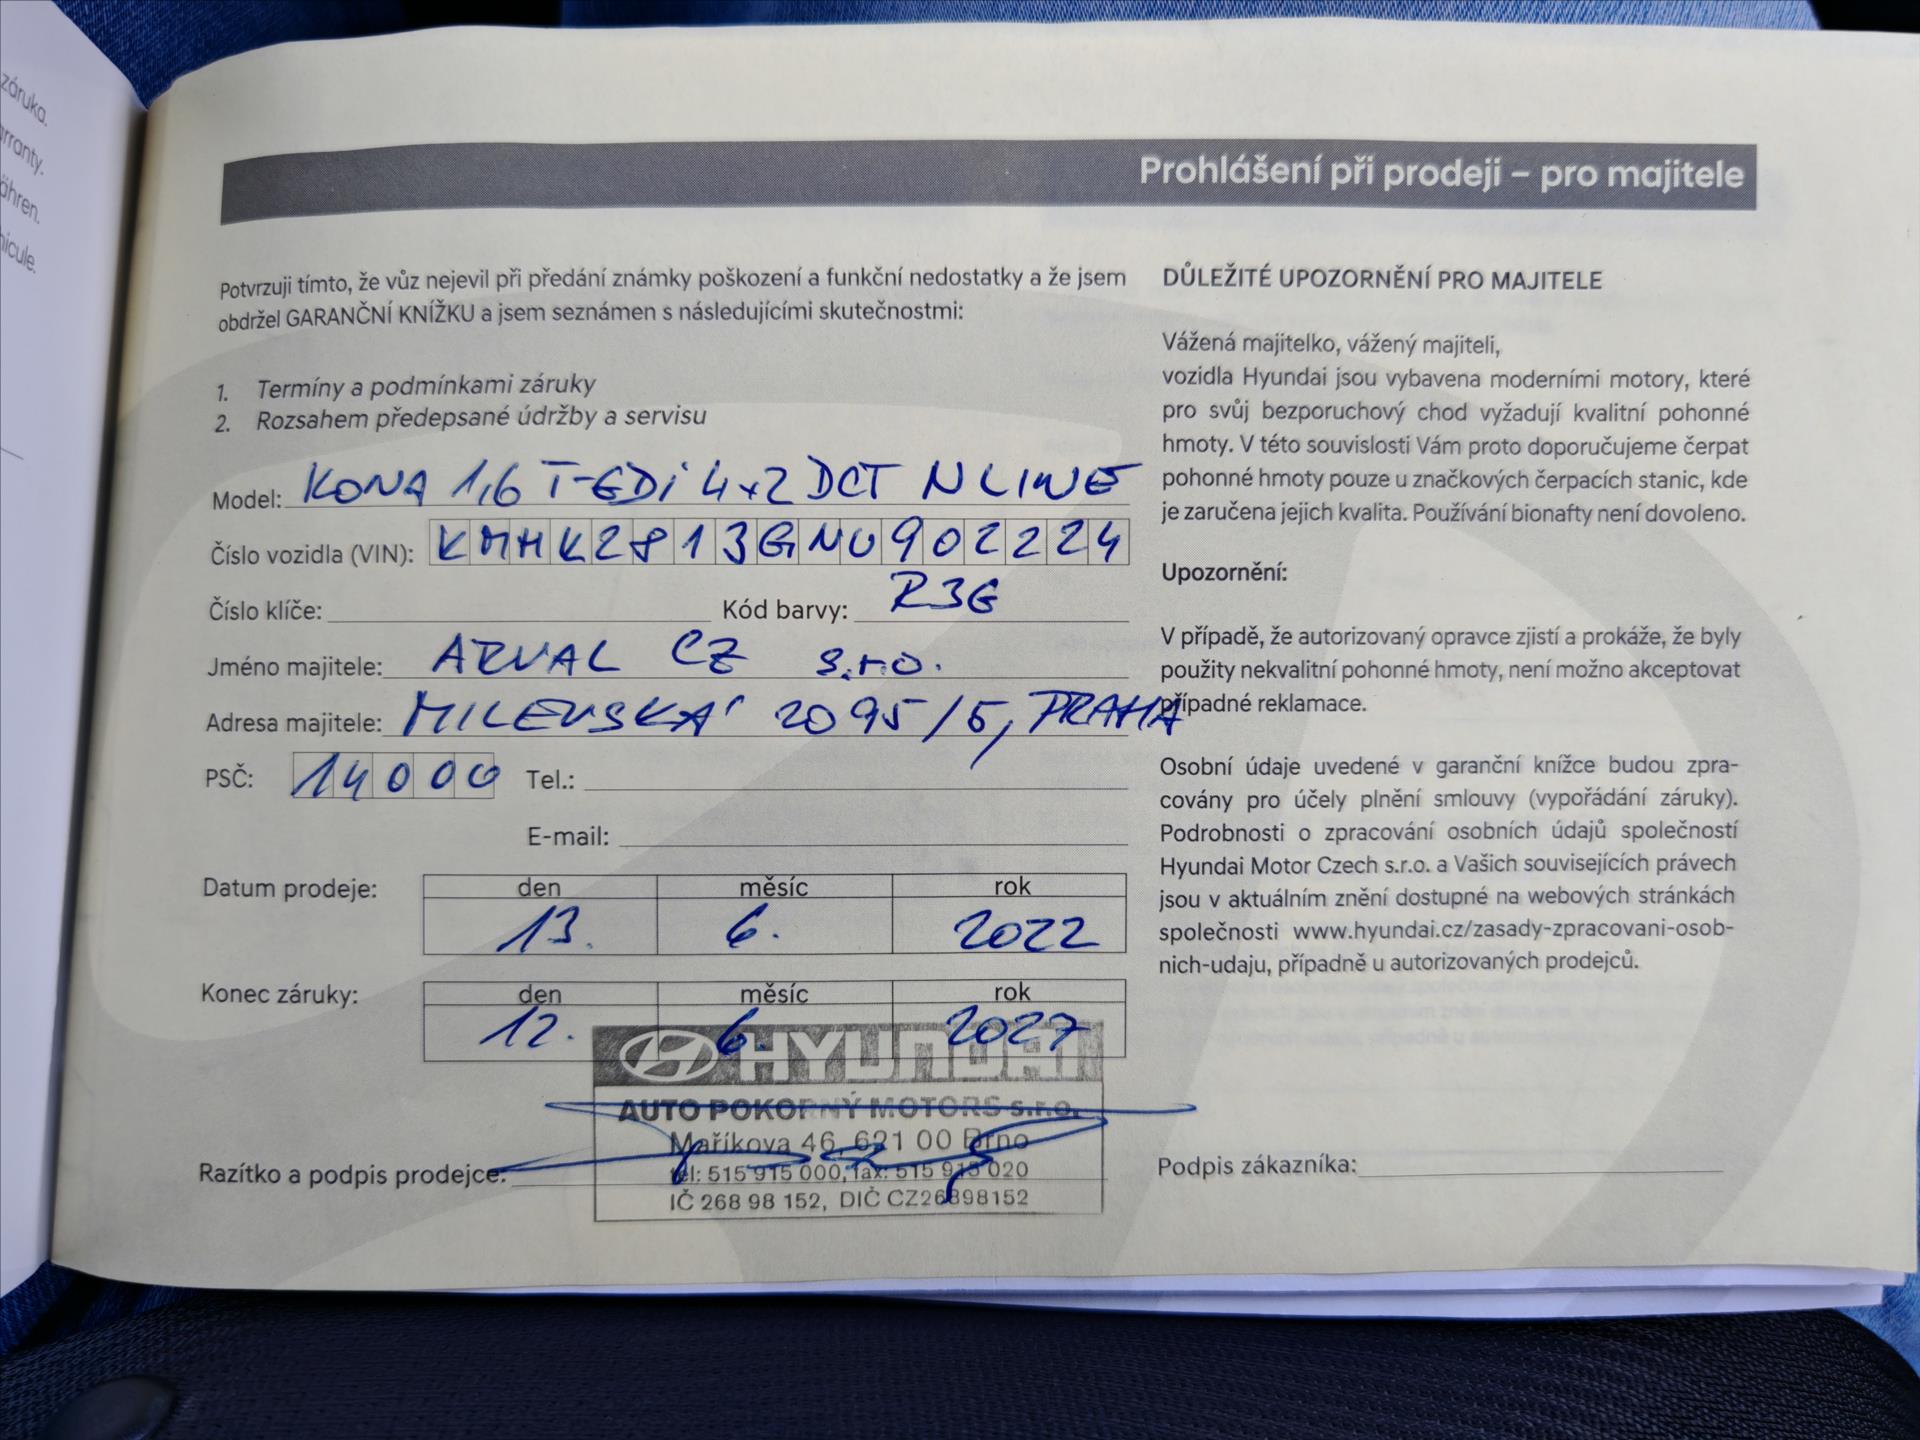 záruka.
arranty.
ähren.
hicule.
Prohlášení při prodeji – pro majitele
Potvrzuji tímto, že vůz nejevil při předání známky poškození a funkční nedostatky a že jsem
obdržel GARANČNÍ KNÍŽKU a jsem seznámen s následujícími skutečnostmi:
1. Termíny a podmínkami záruky
2. Rozsahem předepsané údržby a servisu
Model: KONA 1,6 T-GDi 4x2 DCT NLINE
Číslo vozidla (VIN): KMHK2813GNU902224
Číslo klíče: Kód barvy: R3G
Jméno majitele: ARVAL CZ s.r.o.
Adresa majitele: MILEVSKÁ 2095/5, PRAHA
PSČ: 14000 Tel.:
E-mail:
Datum prodeje: den měsíc rok
13. 6. 2022
Konec záruky: den měsíc rok
12. 6. 2027
HYUNDAI
AUTO POKORNÝ MOTORS s.r.o.
Maříkova 46, 621 00 Brno
Razítko a podpis prodejce: tel: 515 915 000, fax: 515 915 020
IČ 268 98 152, DIČ CZ26898152
DŮLEŽITÉ UPOZORNĚNÍ PRO MAJITELE
Vážená majitelko, vážený majiteli,
vozidla Hyundai jsou vybavena moderními motory, které
pro svůj bezporuchový chod vyžadují kvalitní pohonné
hmoty. V této souvislosti Vám proto doporučujeme čerpat
pohonné hmoty pouze u značkových čerpacích stanic, kde
je zaručena jejich kvalita. Používání bionafty není dovoleno.
Upozornění:
V případě, že autorizovaný opravce zjistí a prokáže, že byly
použity nekvalitní pohonné hmoty, není možno akceptovat
případné reklamace.
Osobní údaje uvedené v garanční knížce budou zpra-
covány pro účely plnění smlouvy (vypořádání záruky).
Podrobnosti o zpracování osobních údajů společností
Hyundai Motor Czech s.r.o. a Vašich souvisejících právech
jsou v aktuálním znění dostupné na webových stránkách
společnosti www.hyundai.cz/zasady-zpracovani-osob-
nich-udaju, případně u autorizovaných prodejců.
Podpis zákazníka: